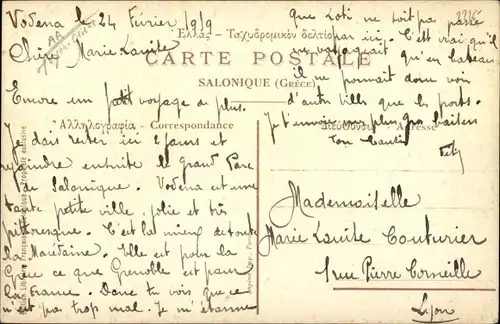 Vodena le 24 Février 1919
Chère Marie Louise
Encore un petit voyage de plus.
Je dois rester ici 2 jours et
rejoindre ensuite le grand Parc
de Salonique. Vodena est une
toute petite ville, jolie et très
pittoresque. C'est là mieux de toute
la Macédoine. Elle est pour la
Grèce ce que Grenoble est pour
la France. Donc tu vois que ce
n'est pas trop mal. Je m'étonne
que Loti ne soit pas passé
par ici. C'est vrai qu'il
ne voyageait qu'en bateau
il ne pouvait donc voir
d'autres villes que les ports.
Je t'envoie mes plus gros baisers
Ton
Ἑλλάς - Ταχυδρομικὸν δελτίον
CARTE POSTALE
SALONIQUE (GRÈCE)
Ἀλληλογραφία - Correspondance
Διεύθυνσις - Adresse
Mademoiselle
Marie Louise Couturier
1 rue Pierre Corneille
Lyon